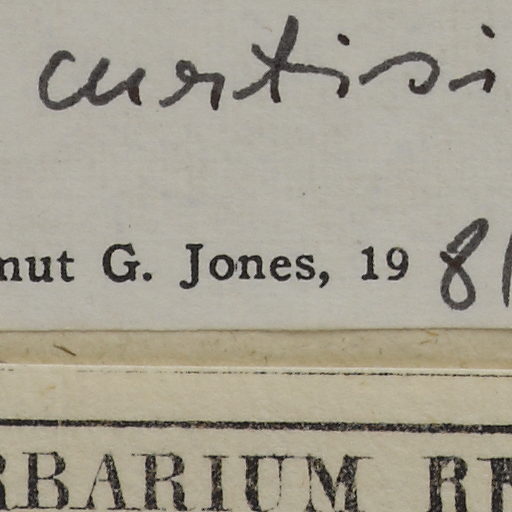 curtisi
mut G. Jones, 19 81
RBARIUM RE